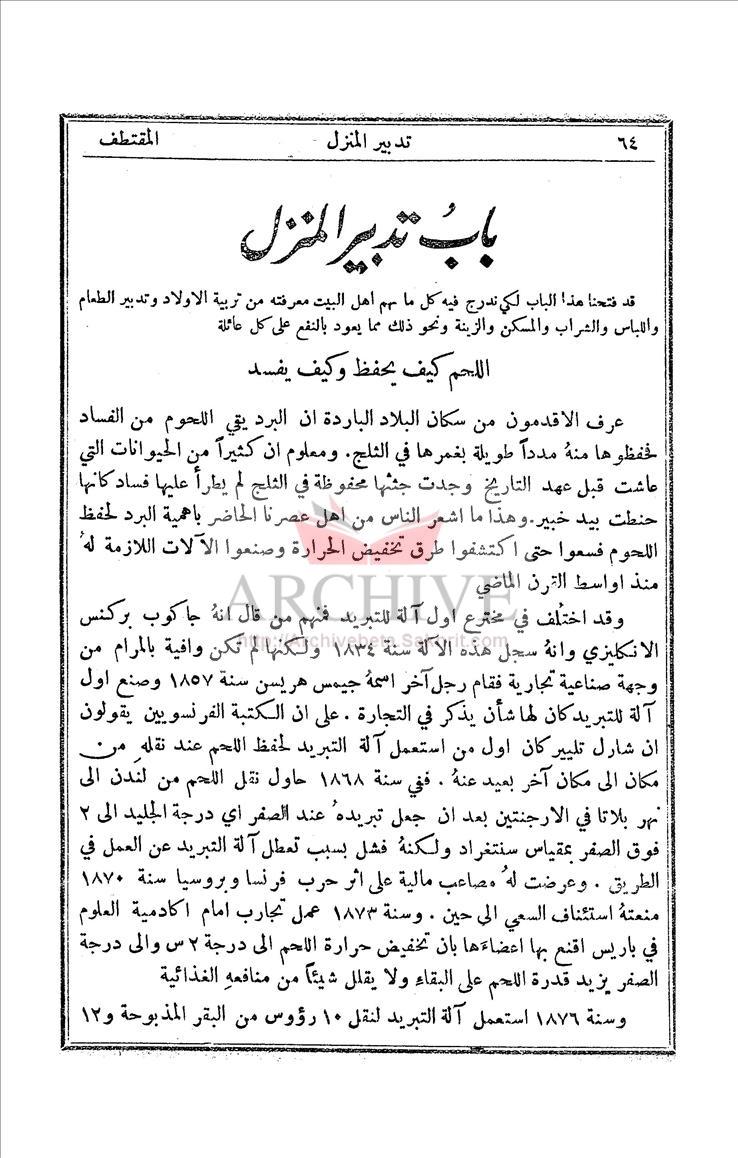 ٦٤ تدبير المنزل المقتطف
بابُ تدبير المنزل
قد فتحنا هذا الباب لكي ندرج فيه كل ما يهم اهل البيت معرفته من تربية الاولاد وتدبير الطعام
واللباس والشراب والمسكن والزينة ونحو ذلك مما يعود بالنفع على كل عائلة
اللحم كيف يحفظ وكيف يفسد
عرف الاقدمون من سكان البلاد الباردة ان البرد يقي اللحوم من الفساد
فحفظوها منهُ مدداً طويلة بغمرها في الثلج. ومعلوم ان كثيراً من الحيوانات التي
عاشت قبل عهد التاريخ وجدت جثثها محفوظة في الثلج لم يطرأ عليها فساد كانها
حنطت بيد خبير. وهذا ما اشعر الناس من اهل عصرنا الحاضر باهمية البرد لحفظ
اللحوم فسعوا حتى اكتشفوا طرق تخفيض الحرارة وصنعوا الآلات اللازمة لهُ
منذ اواسط القرن الماضي
ARCHIVE
http://Archivebeta.Sakhrit.com
وقد اختُلف في مخترع اول آلة للتبريد فمنهم من قال انهُ جاكوب بركنس
الانكليزي وانهُ سجل هذه الآلة سنة ١٨٣٤ ولكنها لم تكن وافية بالمرام من
وجهة صناعية تجارية فقام رجل آخر اسمهُ جيمس هريسن سنة ١٨٥٧ وصنع اول
آلة للتبريد كان لها شأن يذكر في التجارة . على ان الكتبة الفرنسويين يقولون
ان شارل تلييركان اول من استعمل آلة التبريد لحفظ اللحم عند نقلهِ من
مكان الى مكان آخر بعيد عنهُ . ففي سنة ١٨٦٨ حاول نقل اللحم من لندن الى
نهر بلاتا في الارجنتين بعد ان جعل تبريدهُ عند الصفر اي درجة الجليد الى ٢
فوق الصفر بمقياس سنتغراد ولكنهُ فشل بسبب تعطل آلة التبريد عن العمل في
الطريق . وعرضت لهُ مصاعب مالية على اثر حرب فرنسا وبروسيا سنة ١٨٧٠
منعتهُ استئناف السعي الى حين . وسنة ١٨٧٣ عمل تجارب امام اكادمية العلوم
في باريس اقنع بها اعضاءَها بان تخفيض حرارة اللحم الى درجة ٢ س والى درجة
الصفر يزيد قدرة اللحم على البقاءِ ولا يقلل شيئاً من منافعهِ الغذائية
وسنة ١٨٧٦ استعمل آلة التبريد لنقل ١٠ رؤوس من البقر المذبوحة و١٢